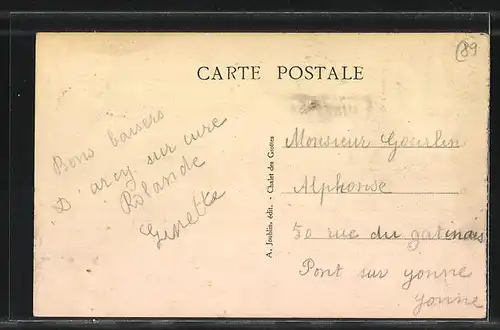 89
CARTE POSTALE
Bons baisers
D'arcy sur cure
Rolande
Ginette
A. Joublin, édit. - Chalet des Grottes
Monsieur Goerlin
Alphonse
50 rue du gatinais
Pont sur yonne
yonne